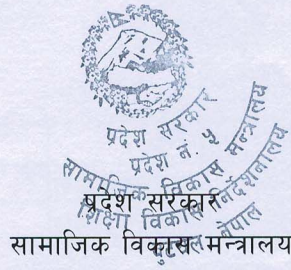 प्रदेश सरकार
प्रदेश नं. ५
सामाजिक विकास मन्त्रालय
शिक्षा विकास निर्देशनालय
बुटवल नेपाल
प्रदेश सरकार
सामाजिक विकास मन्त्रालय